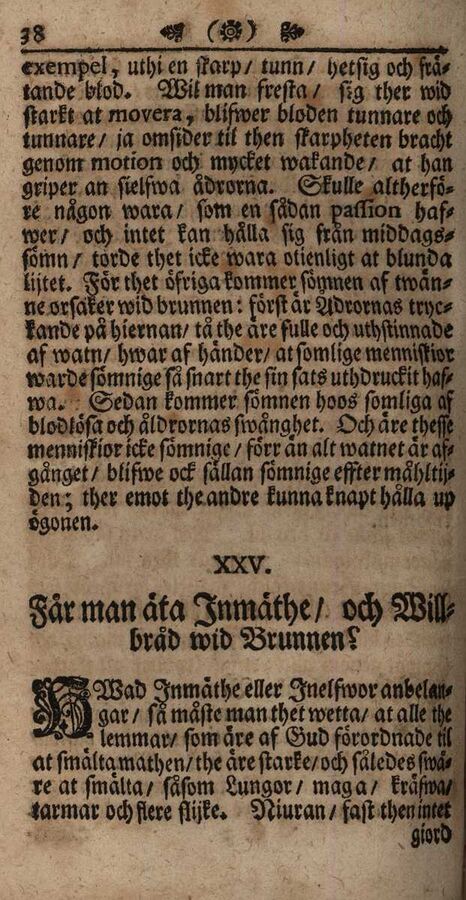 38
exempel, uthi en skarp/ tunn/ hetsig och frä-
tande blod. Wil man fresta/ sig ther wid
starkt at movera, blifwer bloden tunnare och
tunnare/ ja omsider til then skarpheten bracht
genom motion och mycket wakande/ at han
griper an sielfwa ådrorna. Skulle altherfö-
re någon wara/ som en sådan passion haf-
wer/ och intet kan hålla sig från middags-
sömn/ torde thet icke wara otienligt at blunda
lijtet. För thet öfriga kommer sömnen af twän-
ne orsaker wid brunnen: först är Adrornas tryc-
kande på hiernan/ tå the äre fulle och uthstinnade
af watn/ hwar af händer/ at somlige menniskior
warde sömnige så snart the sin sats uthdruckit haf-
wa. Sedan kommer sömnen hoos somliga af
blodlösa och åldrornas swånghet. Och äre thesse
menniskior icke sömnige/ förr än alt watnet är af-
gånget/ blifwe ock sällan sömnige effter måhltij-
den; ther emot the andre kunna knapt hålla up
ögonen.
XXV.
Får man äta Inmäthe/ och Will-
bråd wid Brunnen?
HWad Inmäthe eller Inelfwor anbelan-
gar/ så måste man thet wetta/ at alle the
lemmar/ som äre af Gud förordnade til
at smälta mathen/ the äre starke/ och således swå-
re at smälta/ såsom Lungor/ maga/ kräfwa/
tarmar och flere slijke. Niuran/ fast then intet
giord